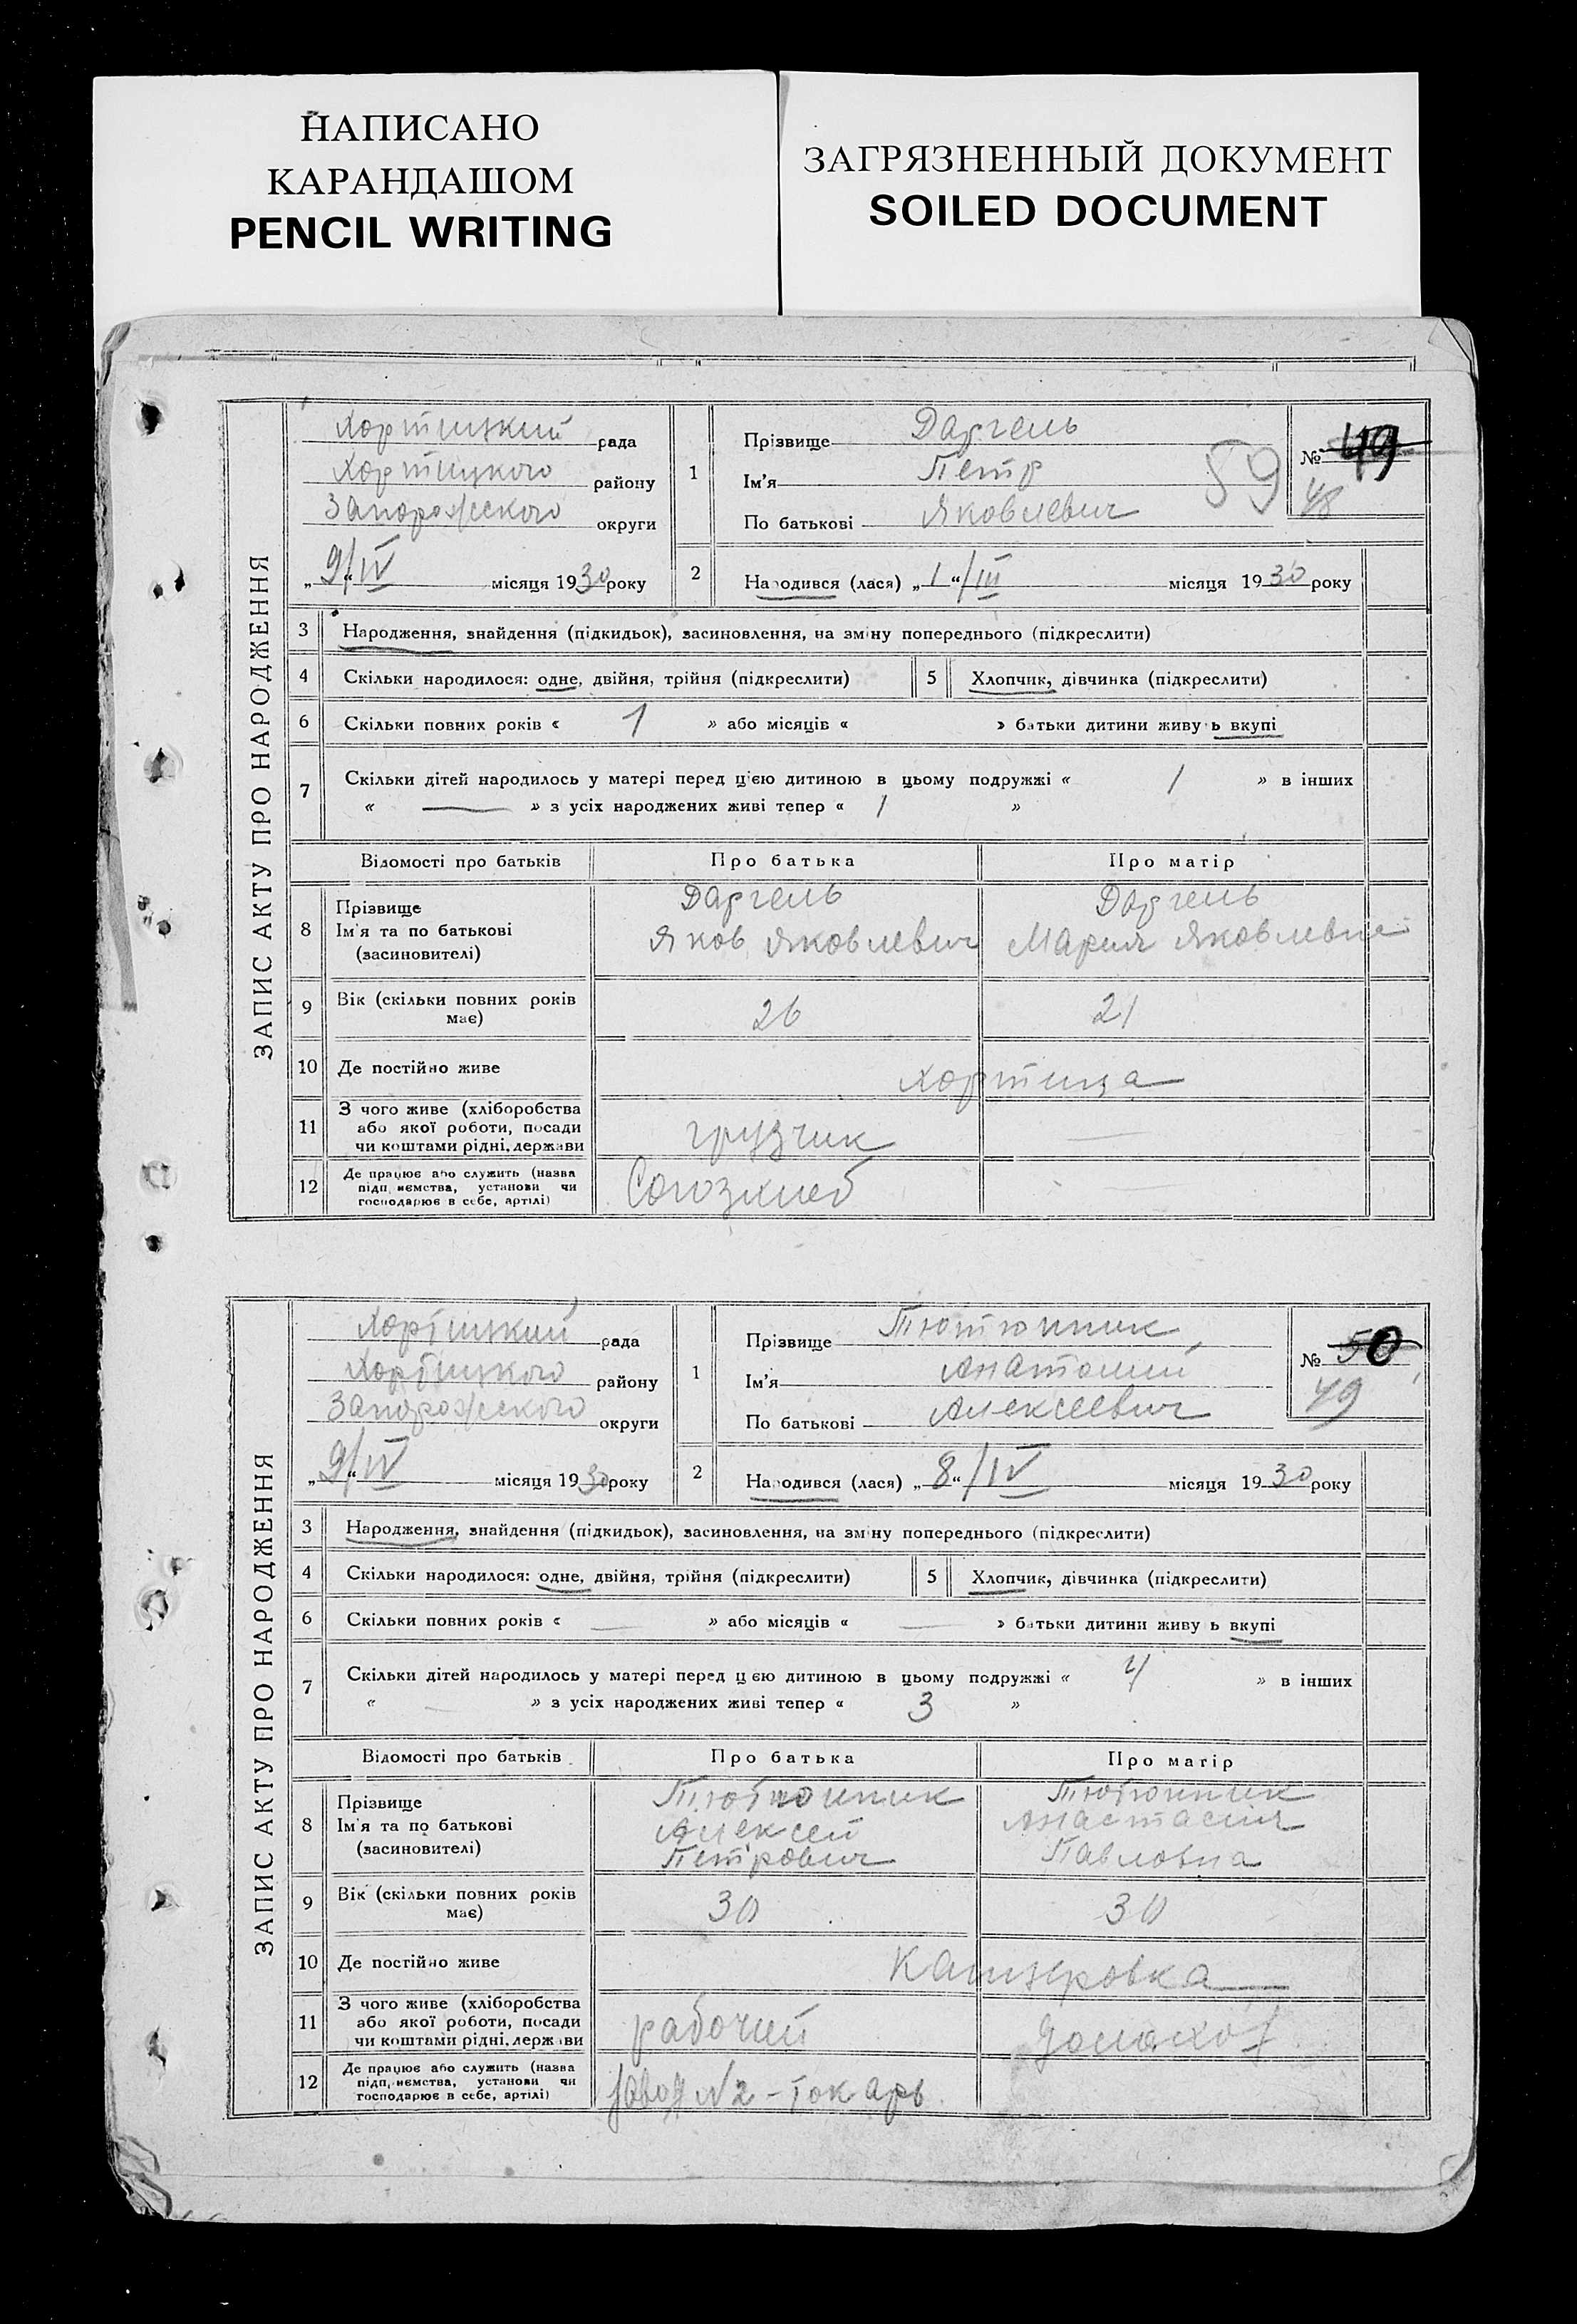 НАПИСАНО
КАРАНДАШОМ
PENCIL WRITING
ЗАГРЯЗНЕННЫЙ ДОКУМЕНТ
SOILED DOCUMENT
ЗАПИС АКТУ ПРО НАРОДЖЕННЯ
Хортицкий рада
Хортицкого району
Запорожского округи
„9/“ IV місяця 1930 року
1 Прізвище Даргель
Ім'я Петр
По батькові Яковлевич
59
№ 49
48
2 Народився (лася) „1“/III місяця 1930 року
3 Народження, знайдення (підкидьок), засиновлення, на зміну попереднього (підкреслити)
4 Скільки народилося: одне, двійня, трійня (підкреслити) 5 Хлопчик, дівчинка (підкреслити)
6 Скільки повних років « 1 » або місяців « » батьки дитини живуть вкупі
7 Скільки дітей народилось у матері перед цією дитиною в цьому подружжі « 1 » в інших
« — » з усіх народжених живі тепер « 1 »
Відомості про батьків Про батька Про матір
8 Прізвище Ім'я та по батькові (засиновителі)
Даргель
Яков Яковлевич
Даргель
Мария Яковлевна
9 Вік (скільки повних років має) 26 21
10 Де постійно живе Хортица
11 З чого живе (хліборобства або якої роботи, посади чи коштами рідні, держави грузчик —
12 Де працює або служить (назва підприємства, установи чи господарює в себе, артілі) Союзхлеб
ЗАПИС АКТУ ПРО НАРОДЖЕННЯ
Хортицкий рада
Хортицкого району
Запорожского округи
„9/“ IV місяця 1930 року
1 Прізвище Тютюнник
Ім'я Анатолий
По батькові Алексеевич
№ 50
49
2 Народився (лася) „8“/IV місяця 1930 року
3 Народження, знайдення (підкидьок), засиновлення, на зміну попереднього (підкреслити)
4 Скільки народилося: одне, двійня, трійня (підкреслити) 5 Хлопчик, дівчинка (підкреслити)
6 Скільки повних років « — » або місяців « — » батьки дитини живуть вкупі
7 Скільки дітей народилось у матері перед цією дитиною в цьому подружжі « 4 » в інших
« — » з усіх народжених живі тепер « 3 »
Відомості про батьків Про батька Про матір
8 Прізвище Ім'я та по батькові (засиновителі)
Тютюнник
Алексей
Петрович
Тютюнник
Анастасия
Павловна
9 Вік (скільки повних років має) 30 30
10 Де постійно живе Канцеровка
11 З чого живе (хліборобства або якої роботи, посади чи коштами рідні, держави рабочий домохоз
12 Де працює або служить (назва підприємства, установи чи господарює в себе, артілі) завод N2 - токарь